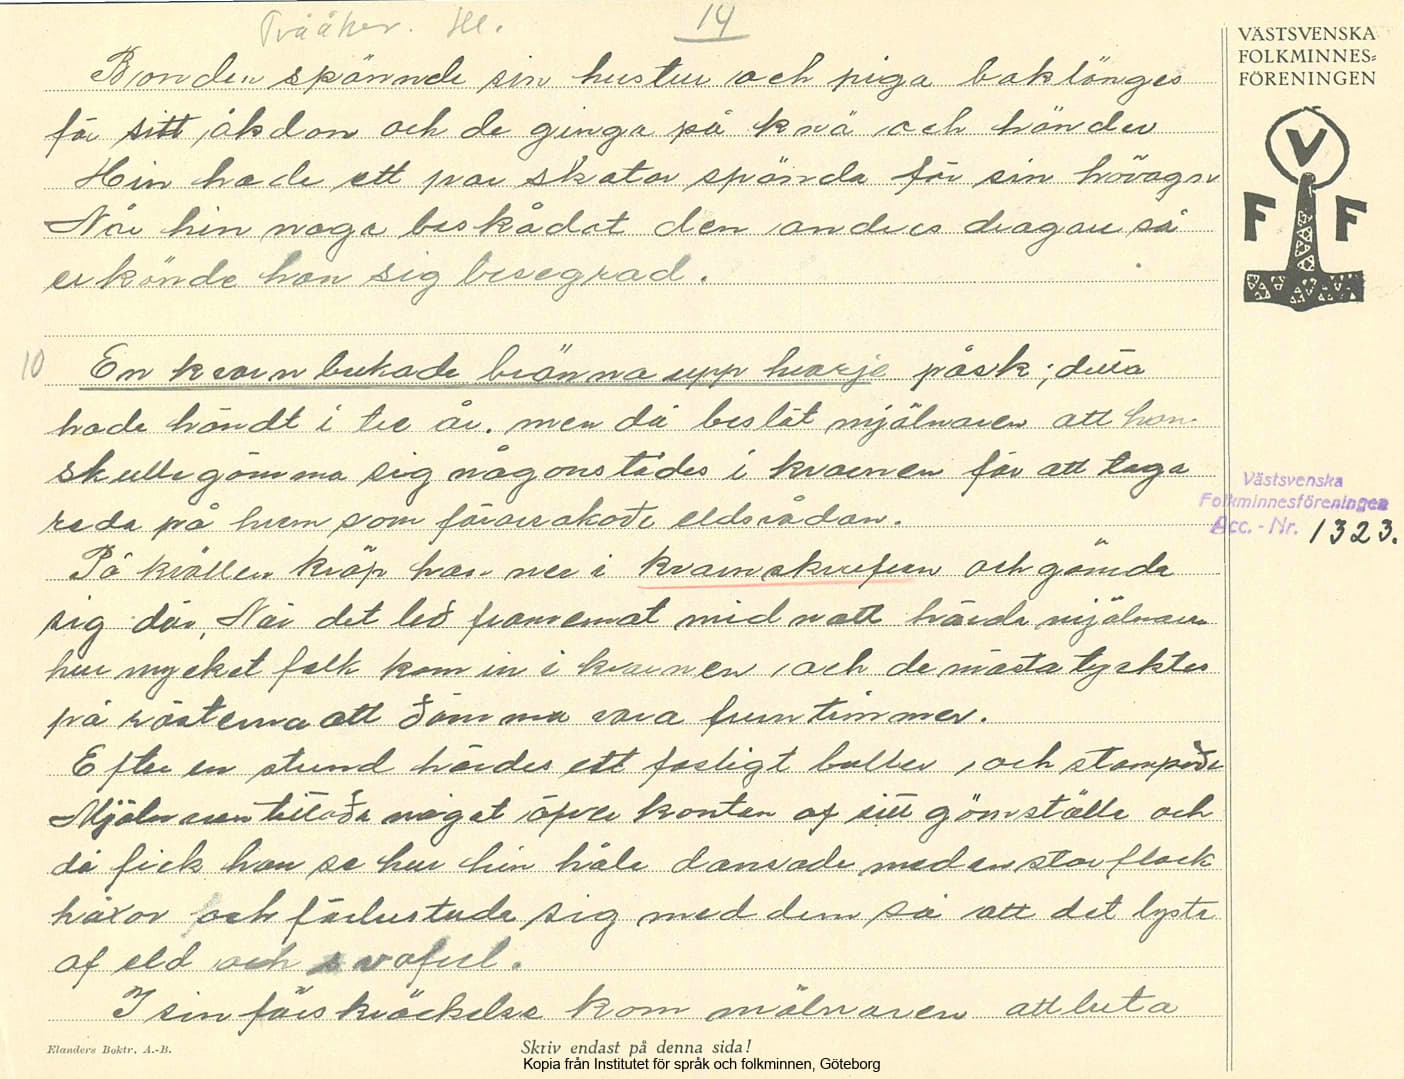 Tvååker. Hl.
14
VÄSTSVENSKA
FOLKMINNES=
FÖRENINGEN
V
F F
Bonden spännde sin hustru och piga baklänges
för sitt åkdon och de gingo på knä och händer
Hin hade ett par skator spända för sin hövagn
När hin noga beskådat den andres dragare så
erkände han sig besegrad.
10 En kvarn brukade bränna upp hvarje påsk; detta
hade händt i tre år. men då beslöt mjölnaren att han
skulle gömma sig någonstädes i kvarnen för att taga
reda på hvem som förorsakade eldsvådan.
På kvällen kröp han ner i kvarnskrufven och gömde
sig där. När det led framemot midnatt hörde mjölnaren
hur mycket folk kom in i kvarnen, och de mästa tycktes
på rösterna att dömma vara fruntimmer.
Efter en stund hördes ett fasligt buller, och stampade
Mjölnaren tittade något öfver kanten af sitt gömställe och
då fick han se hur hin håle dansade med en stor flock
häxor och förlustade sig med dem så att det lyste
af eld och svafvel.
I sin förskräckelse kom mölnaren att luta
Västsvenska
Folkminnesföreningen
Acc.-Nr. 1323.
Elanders Boktr. A.-B.
Skriv endast på denna sida!
Kopia från Institutet för språk och folkminnen, Göteborg